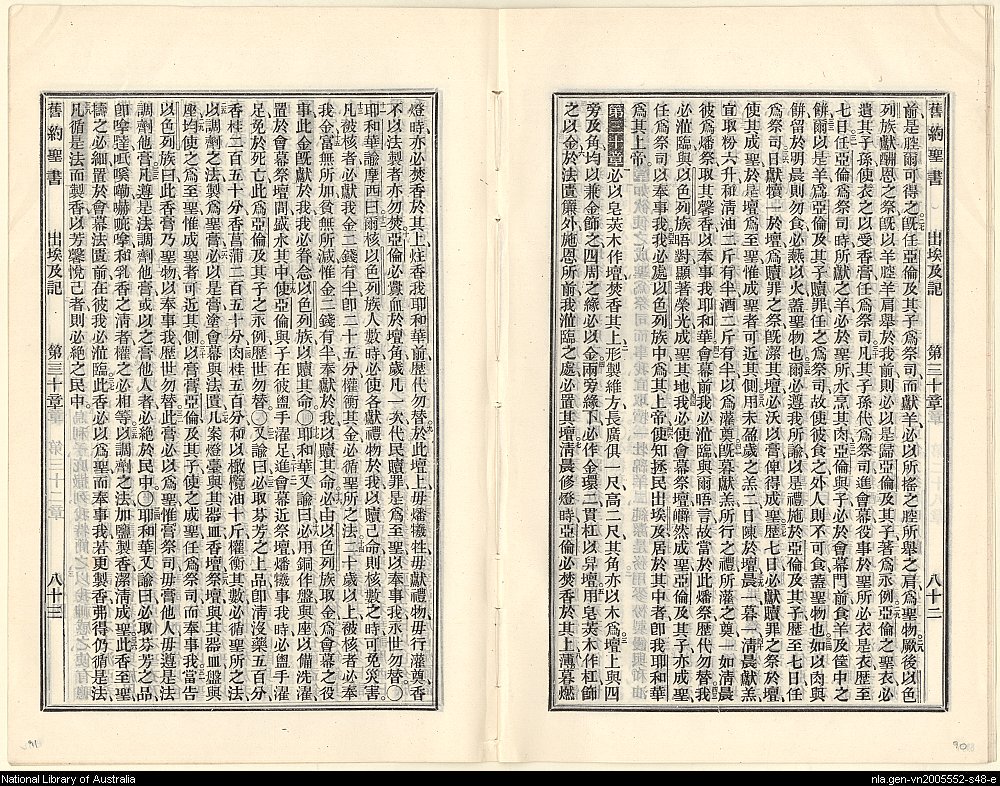 舊約聖書 出埃及記 第三十章 八十二
前是膛爾可得之旣任亞倫及其子爲祭司而獻羊必以所搖之膛所舉之肩爲聖物厥後以色
列族獻酬恩之祭旣以羊膛羊肩舉於我前則必以是歸亞倫及其子著爲永例亞倫之聖衣必
遺其子孫使衣之以受香膏任爲祭司凡其子孫代爲祭司進會幕役事於聖所必衣是衣歷至
七日任亞倫爲祭司時所獻之羊必於聖所水烹其肉亞倫與子必於會幕門前食羊及筐中之
餅爾以是羊爲亞倫及其子贖罪任之爲祭司故使彼食之外人則不可食蓋聖物也如以肉與
餅留於明晨則勿食必爇以火蓋聖物也爾必遵我所諭以是禮施於亞倫及其子歷至七日任
爲祭司日獻犢一於壇爲贖罪之祭旣潔其壇必沃以膏俾得成聖歷七日必獻贖罪之祭於壇
使其成聖於是壇爲至聖惟成聖者可近其側用未盈歲之羔二日陳於壇晨一暮一淸晨獻羔
宜取粉六升和淸油二斤有半酒二斤有半以爲灌奠旣暮獻羔所行之禮所灌之奠一如淸晨
彼爲燔祭取其馨香以奉事我耶和華會幕前我必涖臨與爾晤言故當於此燔祭歷代勿替我
必涖臨與以色列族晤對顯著榮光成聖其地我必使會幕祭壇嶄然成聖亞倫及其子亦成聖
任爲祭司以奉事我我必處以色列族中爲其上帝使知拯民出埃及居於其中者卽我耶和華
爲其上帝
第三十章 必以皂莢木作壇焚香其上形製維方長廣俱一尺高二尺其角亦以木爲壇上與四
旁及角均以兼金飾之四周之緣必以金兩旁緣下必作金環二貫杠以舁壇用皂莢木作杠飾
之以金於法匱簾外施恩所前我涖臨之處必置其壇淸晨修燈時亞倫必焚香於其上薄暮燃
燈時亦必焚香於其上炷香我耶和華前歷代勿替於此壇上毋燔犧牲毋獻禮物毋行灌奠香
不以法製者亦勿焚亞倫必釁血於壇角歲凡一次代民贖罪是爲至聖以奉事我永世勿替〇
耶和華諭摩西曰爾核以色列族人數時必使各獻禮物於我以贖己命則核數之時可免災害
凡被核者必獻我金二錢有半卽二十五分權衡其金必循聖所之法二十歲以上被核者必奉
我金富無所加貧無所減惟金二錢有半奉獻於我以贖其命必由以色列族取金爲會幕之役
事此金旣獻於我我必眷念以色列族以贖其命〇耶和華又諭曰必用銅作盤與座以備洗濯
置於會幕祭壇間盛水其中使亞倫與子在彼盥手濯足進會幕近祭壇燔犧事我時必盥手濯
足免於死亡此爲亞倫及其子之永例歷世勿替〇又諭曰必取芬芳之上品卽淸沒藥五百分
香桂二百五十分香菖蒲二百五十分肉桂五百分和以橄欖油十斤權衡其數必循聖所之法
以調劑之法製爲聖膏必以是膏塗會幕與法匱几案燈臺與其器皿香壇祭壇與其器皿盤與
座均使之成聖爲至聖惟成聖者可近其側以膏膏亞倫及其子使之成聖任爲祭司而奉事我當告
以色列族曰此香膏乃聖物以奉事我歷世勿替此膏必以爲聖惟膏祭司毋膏他人毋遵是法
調劑他膏凡遵是法調劑他膏或以之膏他人者必絕於民中〇耶和華又諭曰必取芬芳之品
卽嗱噠㕶嘰嘞嚇㕶嗱和乳香之淸者權之必相等以調劑之法加鹽製香潔淸成聖此香至聖
擣之必細置於會幕法匱前在彼我必涖臨此香必以爲聖而奉事我若更製香弗得仍循是法
凡循是法而製香以芳馨悅己者則必絕之民中
舊約聖書 出埃及記 第三十章 八十三
National Library of Australia
nla.gen-vn2005552-s48-e